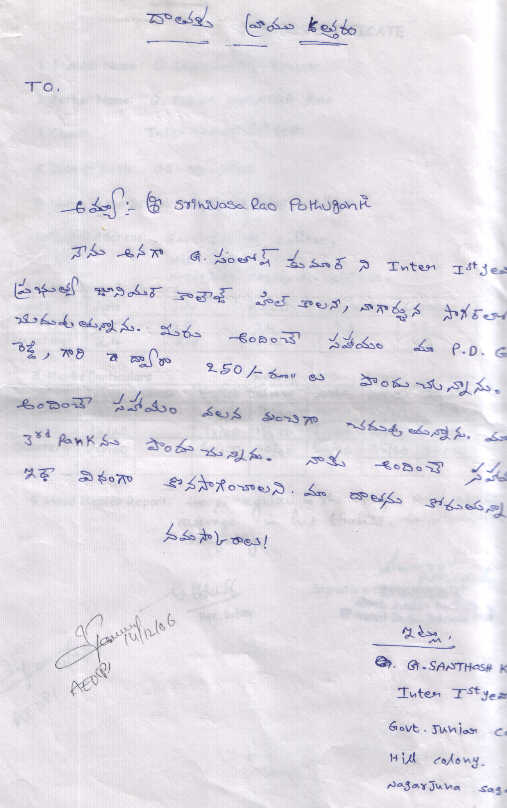 దాతకు వ్రాయు ఉత్తరం
TO.
అయ్యా: శ్రీ Srinivasa Rao Pothuganti
నేను అనగా G. సంతోష్ కుమార్ ని Inter Ist yea
ప్రభుత్వ జూనియర్ కాలేజ్ హిల్ కాలని, నాగార్జున సాగర్‌లో
చదువుతున్నాను. మీరు అందించే సహాయం మా P.D. G
రెడ్డి, గారి ద్వారా 250/- రూ॥ లు పొందుచున్నాను.
అందించే సహాయం వలన మంచిగా చదువుతున్నాను. మా
3rd Rank ను పొందుచున్నాను. నాకు అందించే సహా
ఇదే విధంగా కొనసాగించాలని. మా దాతను కోరుతున్నా
నమస్కారాలు!
14/12/06
ఇట్లు,
G. SANTHOSH K
Inter Ist yea
Govt. Junior Co
Hill colony.
Nagarjuna sag